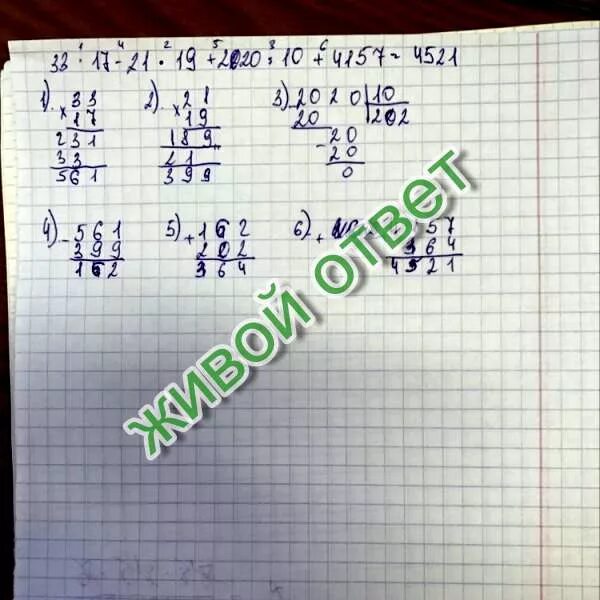 33 · 17 - 21 · 19 + 2020 : 10 + 4157 = 4521
1) 33
× 17
231
33
561
2) 21
× 19
189
21
399
3) 2020 10
20 202
- 20
20
0
4) - 561
399
162
5) + 162
202
364
6) + 57
364
4521
живой ответ